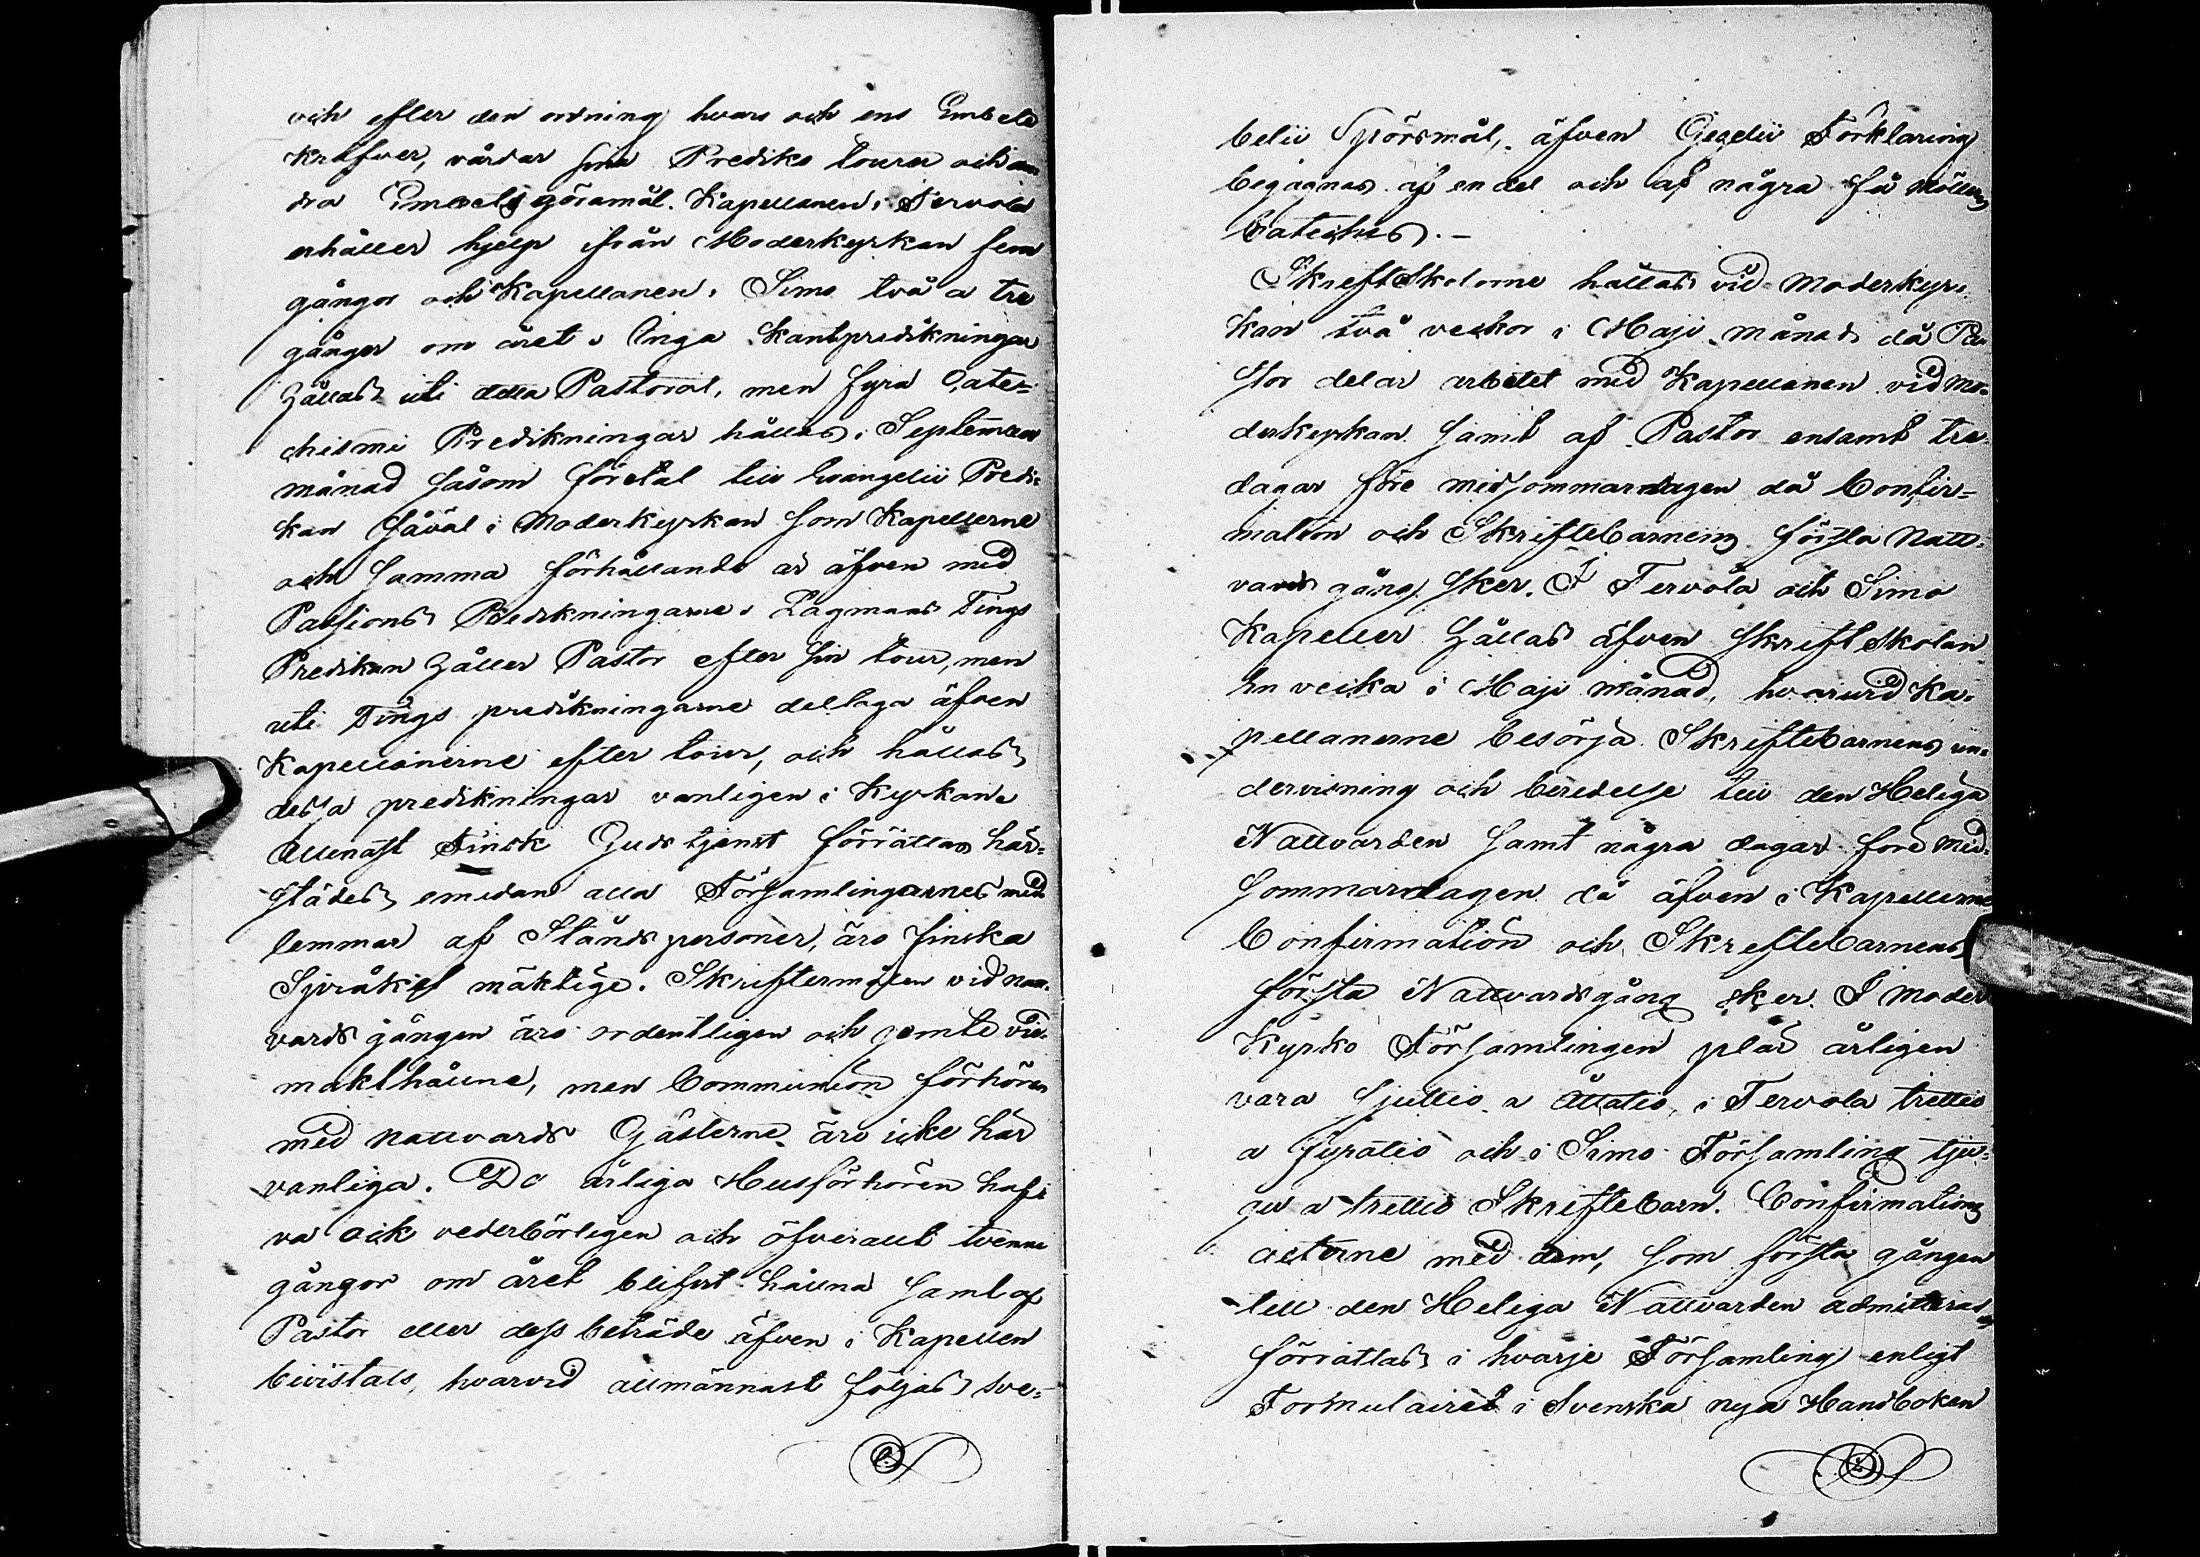 och efter den ordning hvars och ens Embete
kräfver, vårdar sina Prediko tourer och an-
dra Embetsgöromål. Kapellanen i Tervola
erhåller hjelp ifrån Moderkyrkan fem
gångor och Kapellanen i Simo två a tre
gånger om året. Inga Skantpredikningar
hållas uti detta Pastorat, men fyra Cate-
chismi Predikningar hållas i September
månad såsom företal till Evangelii Predi-
kan såväl i Moderkyrkan som Kapellerne
och samma förhållande är äfven med
Passions Predikningarne. Lagmans Tings
Predikan håller Pastor efter sin tour, men
uti Tings predikningarne deltaga äfven
Kapellanerne efter tour, och hållas
dessa predikningar vanligen i Kyrkan.
Allenast Finsk Gudstjenst förrättas här-
städes emedan alla Församlingarnes med-
lemmar af Ståndspersoner, äro finska
Språket mäktige. Skriftermålen vid natt-
vards gången äro ordentligen och jemte vid-
makthållne, men Communion förhören
med nattvards Gästerne äro icke här
vanliga. De årliga Husförhören haf-
va ock vederbörligen och öfverallt tvenne
gångor om året blifvit hållna samt af
Pastor eller dess beträde äfven i Kapellen
bivistats, hvarvid allmännast följas Sve-
belii Spörsmål, äfven Gezelii Förklaring
begagnas af en del och af några få Möllers
Cateches. -
SkriftSkolorne hållas vid Moderkyr-
kan två veckor i Maji månad då Pa-
stor delar arbetet med Kapellanen vid Mo-
derkyrkan samt af Pastor ensamt tre
dagar före midsommardagen då Confir-
mation och Skriftebarnens första Natt-
vards gång sker. I Tervola och Simo
Kapeller hållas äfven skriftskolan
en vecka i Maji månad, hvarvid Ka-
pellanerne besörja Skriftebarnens un-
dervisning och beredelse till den Heliga
Nattvarden samt några dagar före Mid-
sommardagen då äfven i Kapellerne
Confirmation och Skriftebarnens
första Nattvardsgång sker. I Moder
Kyrko Församlingen plär årligen
vara sjuttio a åttatio, i Tervola trettio
a fyratio och i Simo Församling tju-
gu a trettio Skriftebarn. Confirmations
acterne med dem, som första gången
till den Heliga Nattvarden admitteras
förrättas i hvarje Församling enligt
Formulairet i Svenska nya Handboken